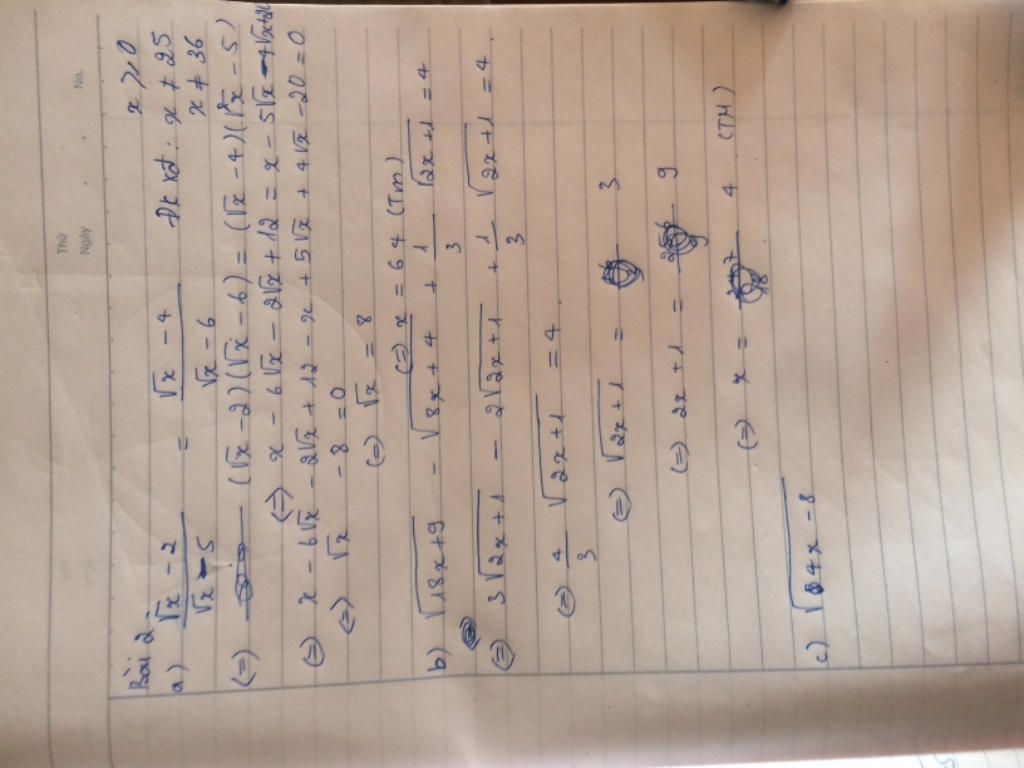 Thứ
Ngày
No.
Bài 2
a) (√x - 2)/(√x - 5) = (√x - 4)/(√x - 6) đk xđ: x ≥ 0 x ≠ 25 x ≠ 36
(=) (√x - 2)(√x - 6) = (√x - 4)(√x - 5)
(=) x - 6√x - 2√x + 12 = x - 5√x - 4√x + 20
(=) x - 6√x - 2√x + 12 - x + 5√x + 4√x - 20 = 0
(=) √x - 8 = 0
(=) √x = 8
(=) x = 64 (Tm)
b) √18x+9 - √8x+4 + 1/3 √2x+1 = 4
(=) 3√2x+1 - 2√2x+1 + 1/3 √2x+1 = 4.
(=) 4/3 √2x+1 = 4
(=) √2x+1 = 3
(=) 2x + 1 = 9
(=) x = 4 (TM)
c) √4x - 8